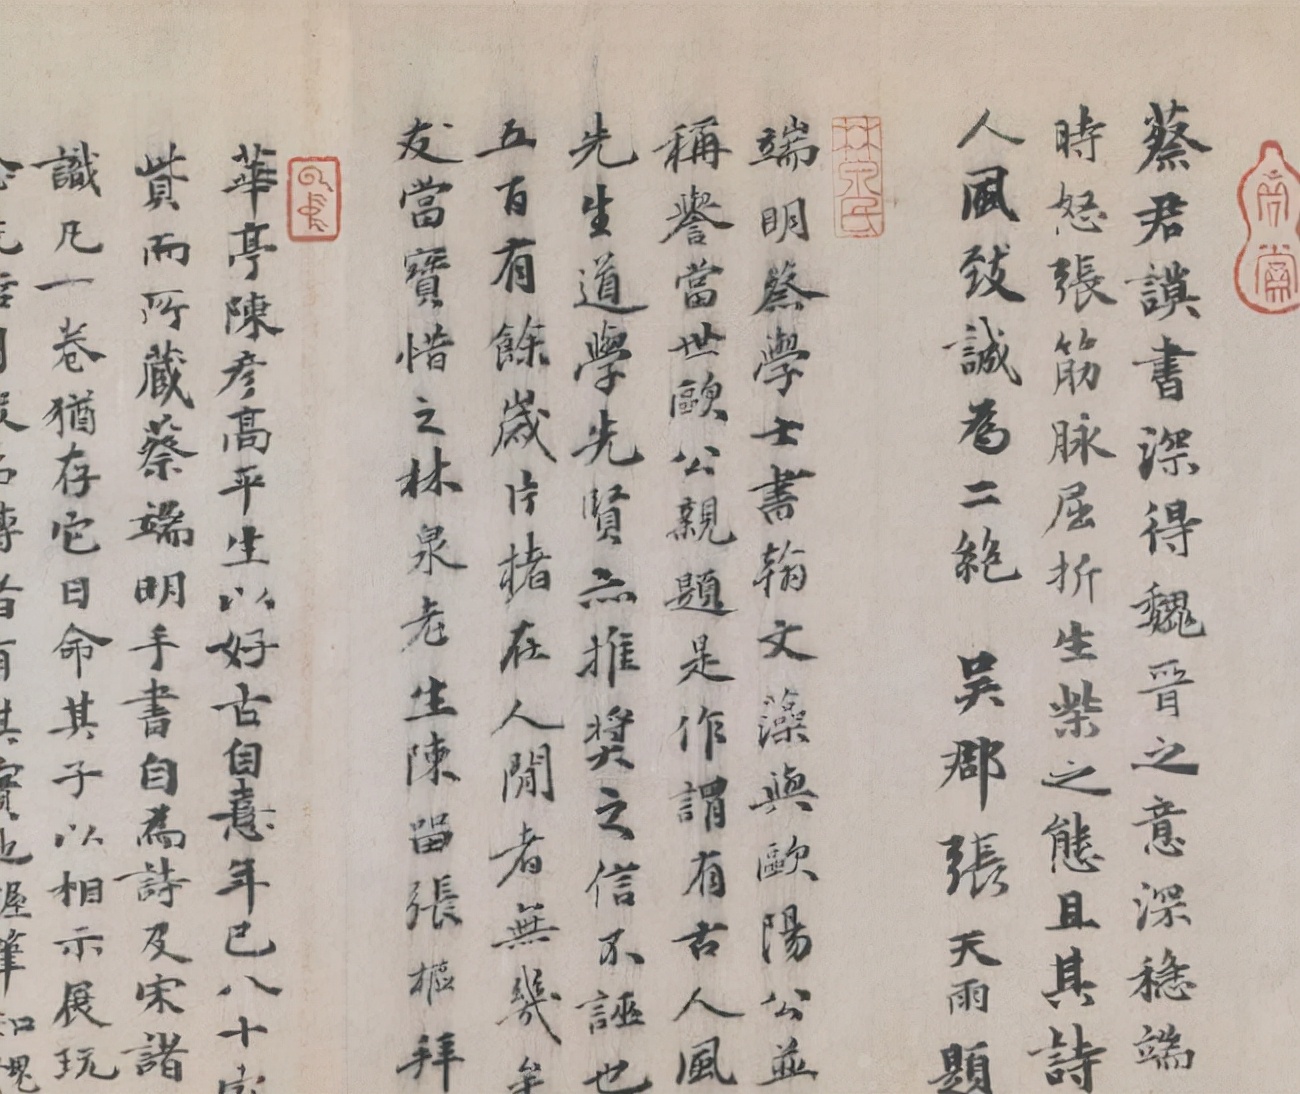 蔡君謨書深得魏晉之意深穩端
時怒張筋脉屈折生柴之態且其詩
人風致誠為二絶 吴郡張天雨題
林泉氏
端明蔡學士書翰文藻與歐陽公並
稱譽當世歐公親題是作謂有古人風
先生道學先賢亦推奨之信不誣也
五百有餘歲片楮在人間者無幾
友當寳惜之林泉老生陳畱張樞拜
華亭陳彦高平生以好古自憙年已八十
貲而所藏蔡端明手書自為詩及宋諸
識凡一卷猶存它日命其子以相示展玩